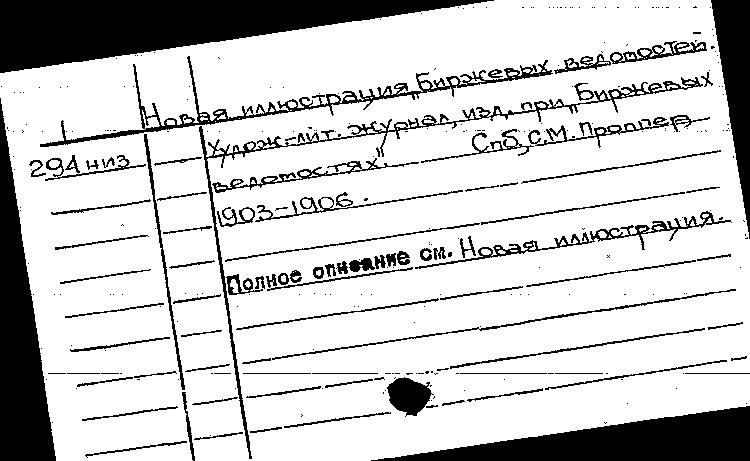 Новая иллюстрация „Биржевых ведомостей.
1
294 низ
Худож.-лит. журнал, изд. при „Биржевых
ведомостях". Спб, С.М. Проппер
1903-1906.
Полное описание см. Новая иллюстрация.